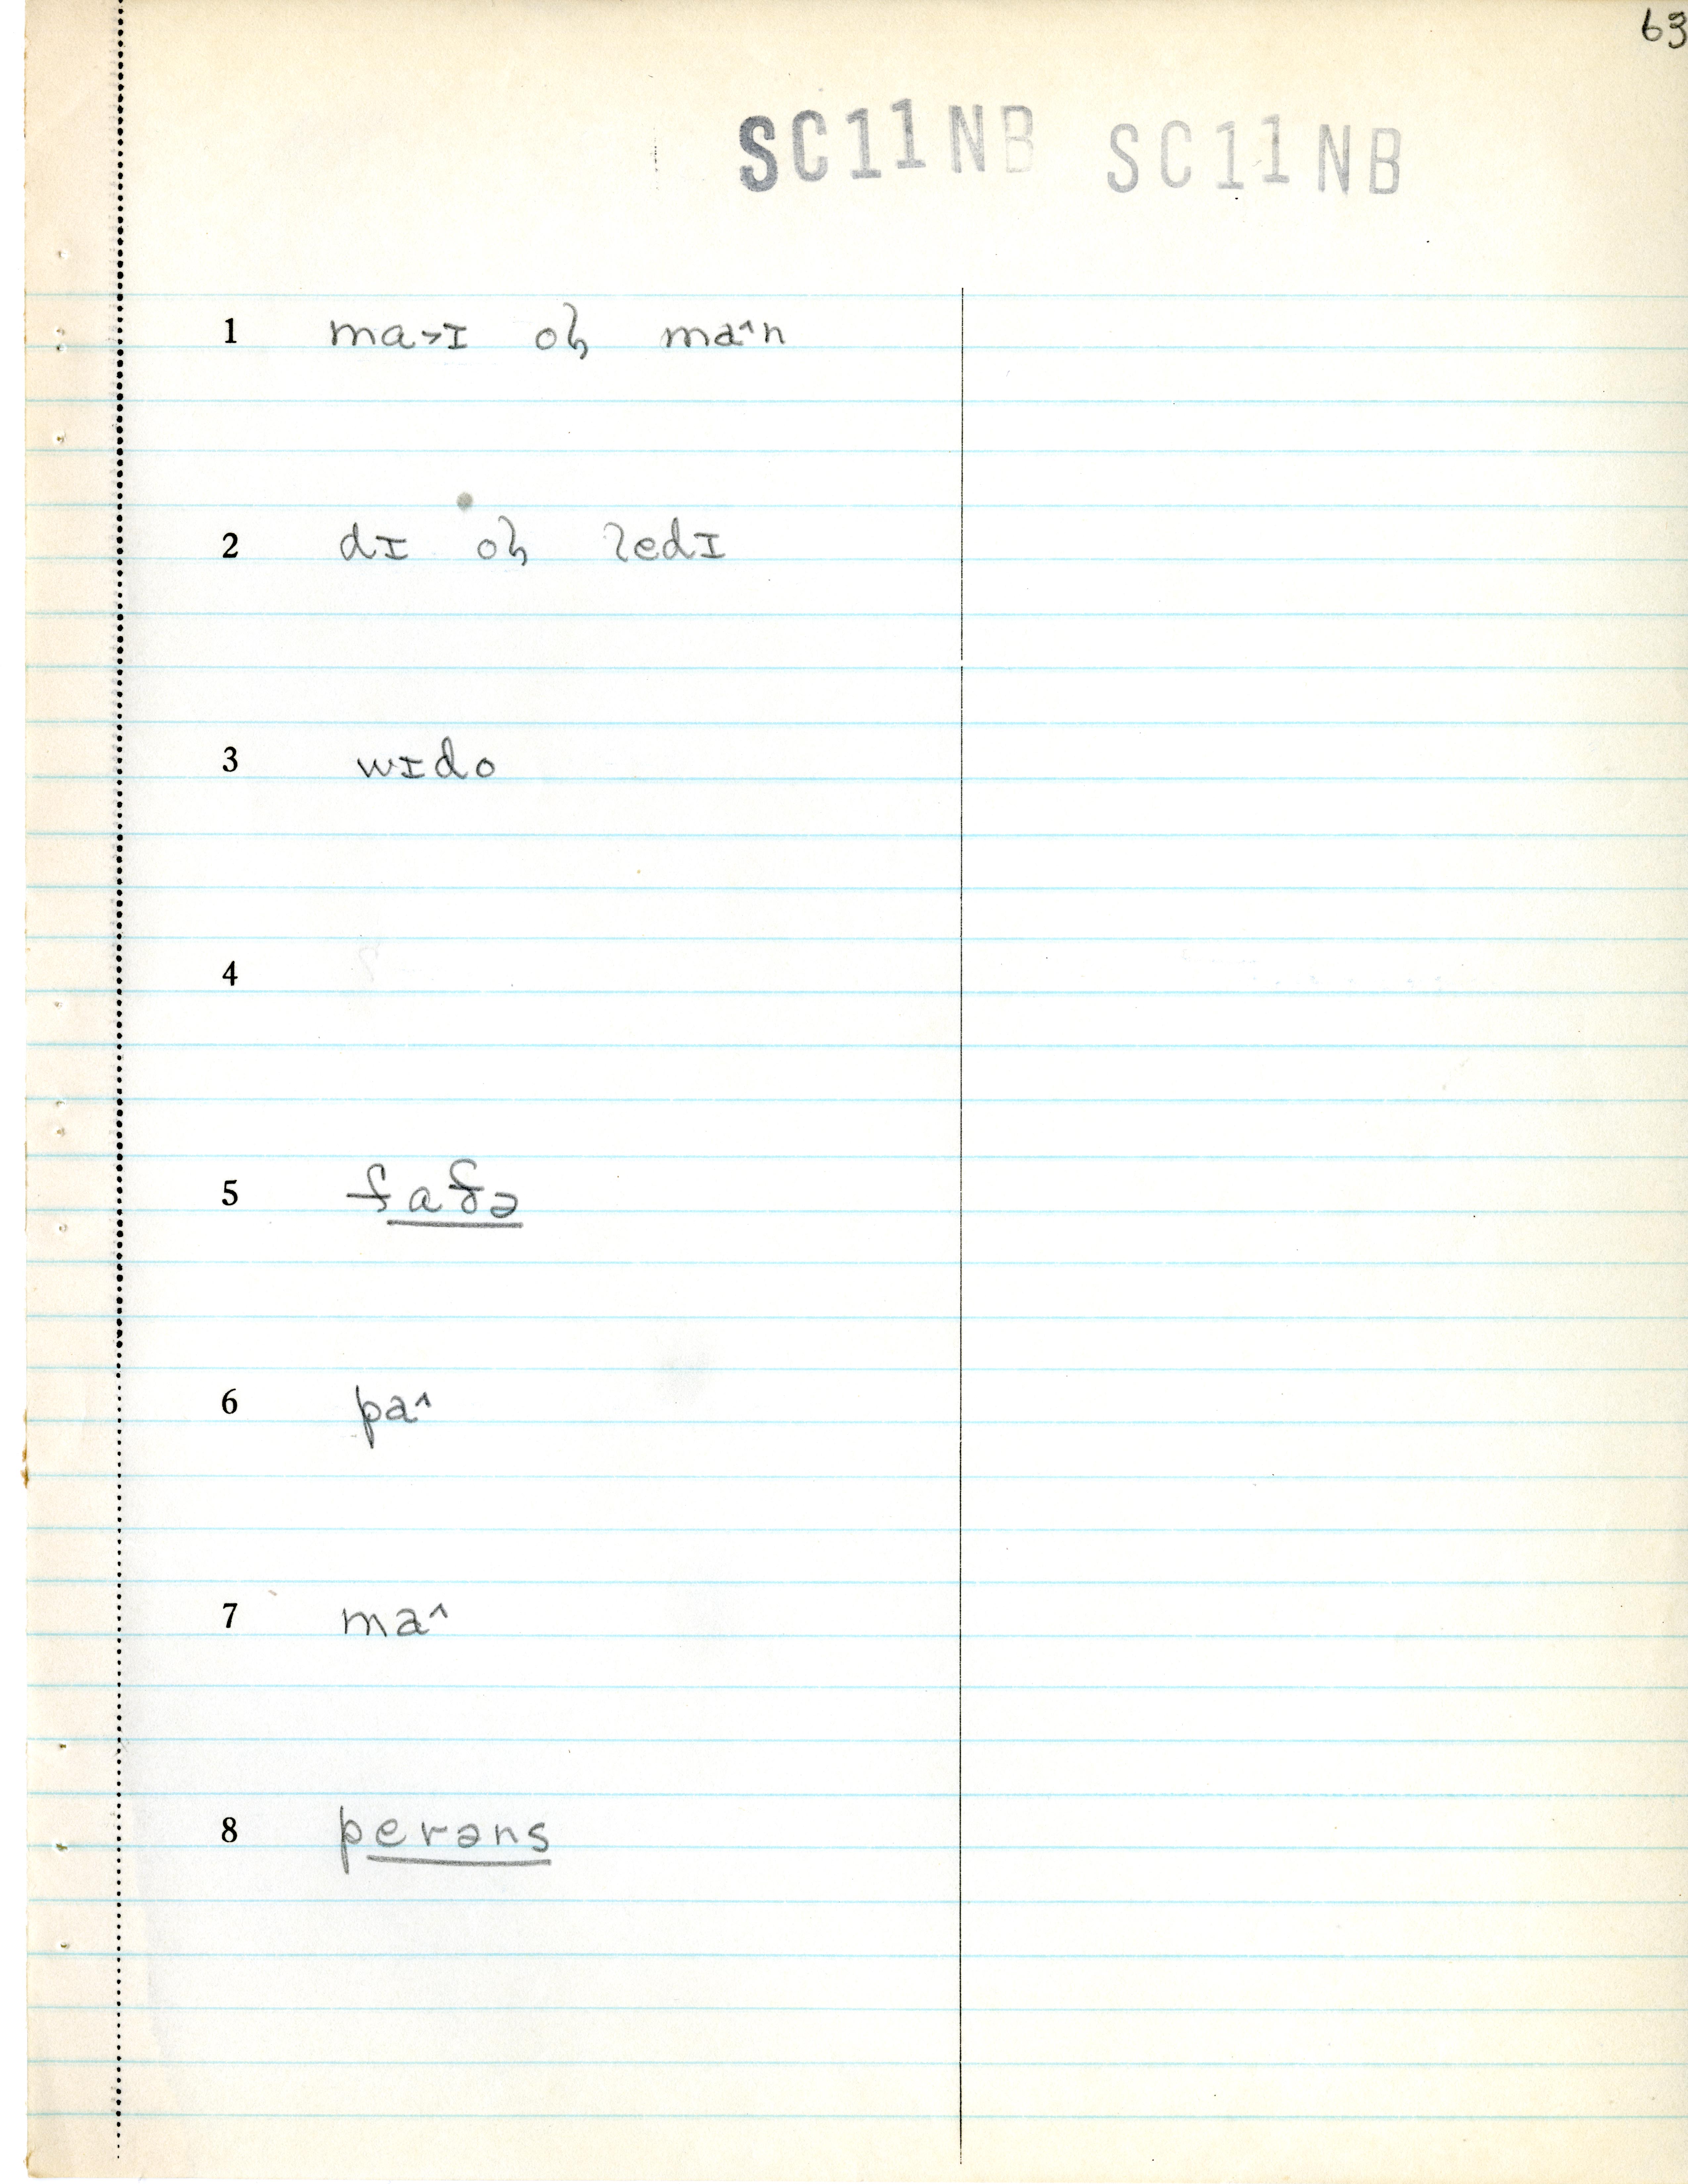 63
SC11NB SC11NB
1 ma˃ɪ oɮ maˆn
2 dɪ oɮ ʔedɪ
3 wɪdo
4
5 fafə
6 paˆ
7 maˆ
8 perəns